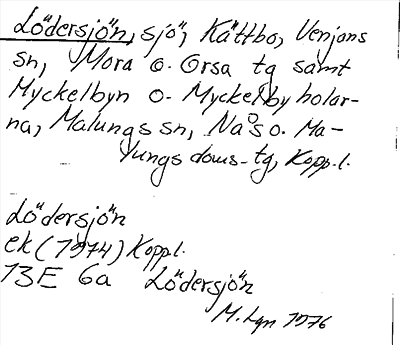 Lödersjön, sjö, Kättbo, Venjans
sn, Mora o. Orsa tg samt
Myckelbyn o. Myckelbyholar-
na, Malungs sn, Nås o. Ma-
lungs doms-tg, Kopp.l.
Lödersjön
ek (1974) Koppl.
13E 6a Lödersjön
M. Lgn 1976